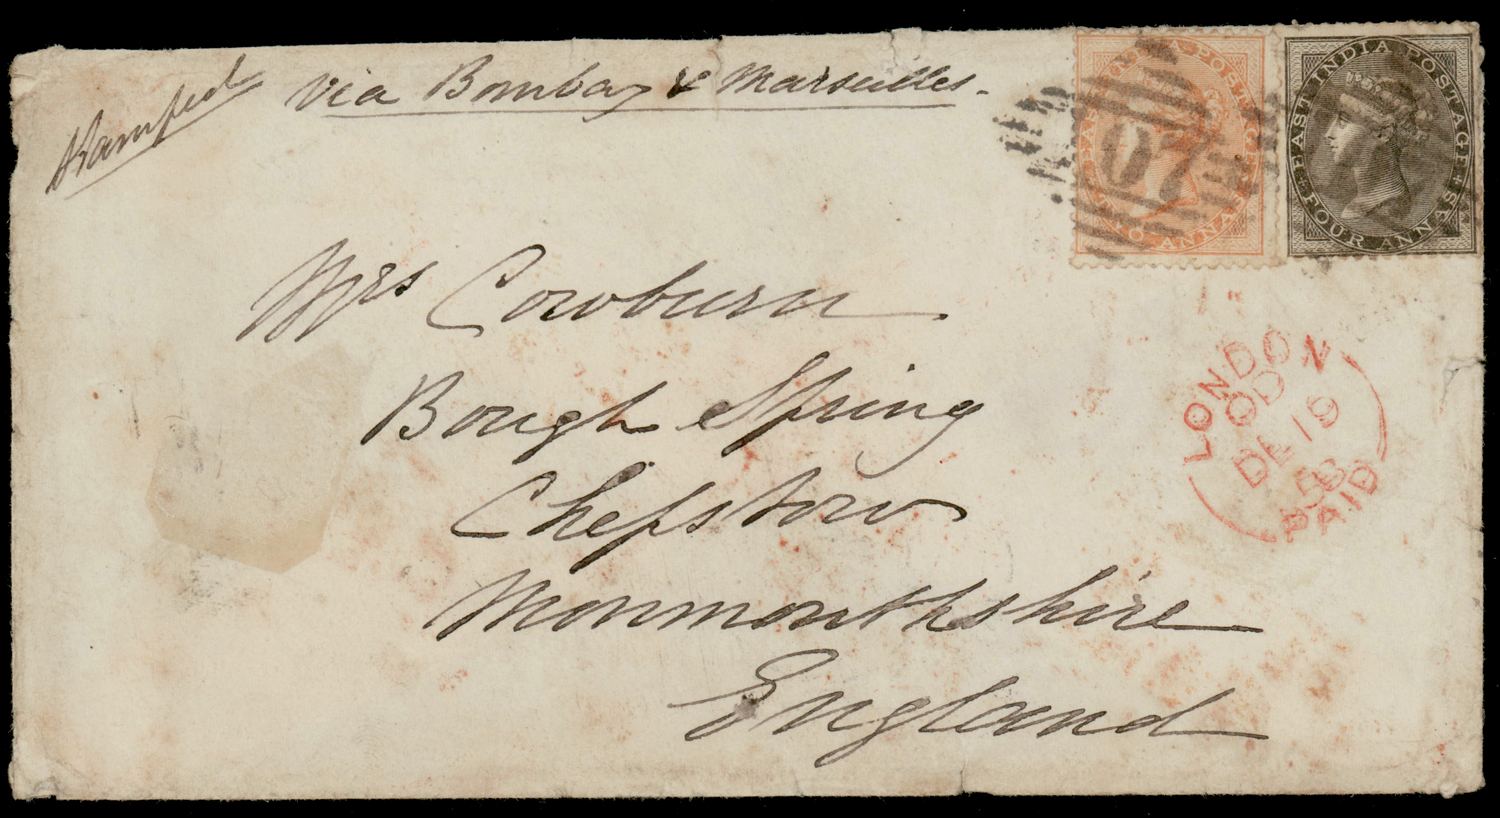 Stamped
via Bombay & Marseilles.
EAST INDIA POSTAGE
TWO ANNAS
07
EAST INDIA POSTAGE
FOUR ANNAS
Mrs Cowburn
Bough Spring
Chepstow
Monmonthshire
England
LONDON
DE 19
58
PAID